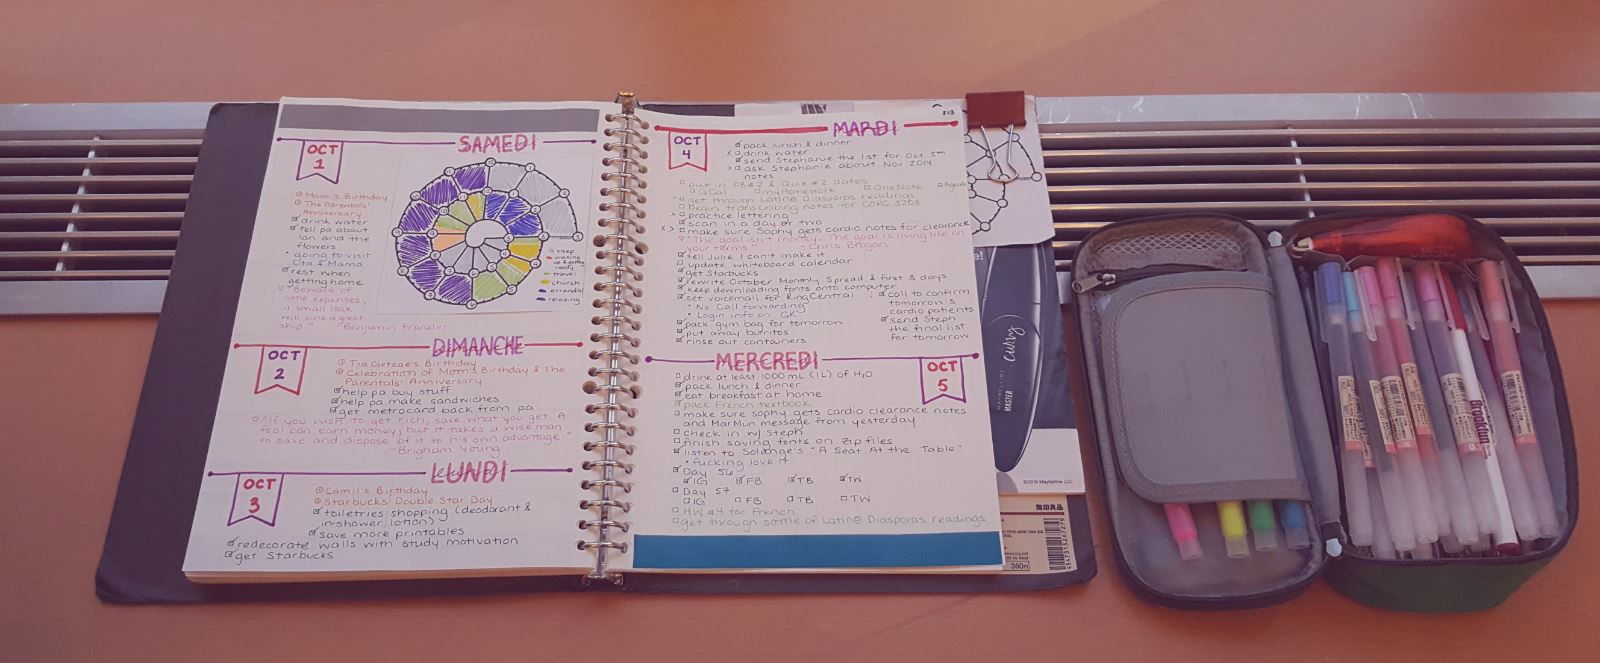 SAMEDI
OCT
1
Mami's Birthday
The Parentals'
Anniversary
drink water
tell pa about
Ian and the
flowers
going to visit
Tia & Mama
rest when
getting home
"Beware of
little expenses,
a small leak
will sink a great
ship." -Benjamin Franklin
sleep
waking
up & getting
ready
travel
church
errands
relaxing
DIMANCHE
OCT
2
Birthday
Celebration of Mom's Birthday & The
Parentals' Anniversary
help pa buy stuff
help pa make sandwiches
get metrocard back from pa
"If you wish to get rich, save what you get. A
fool can earn money, but it takes a wise man
to save and dispose of it to his own advantage."
-Brigham Young
LUNDI
OCT
3
Camil's Birthday
Starbucks Double Star Day
toiletries shopping (deodorant &
in-shower lotion)
save more printables
redecorate walls with study motivation
get Starbucks
213
MARDI
OCT
4
pack lunch & dinner
drink water
send Stephanie the list for Oct 5th
ask Stephanie about Nov 2014
notes
put in DB#2 & Quiz #2 dates
GCal myHomework OneNote
get through Latin@ Diasporas readings
begin transcribing notes for CORC 3203
practice lettering
scan in a day or two
make sure Sophy gets cardio notes for clearance
"The goal isn't money. The goal is living life on
your terms." -Chris Brogan
tell Julie I can't make it
update whiteboard calendar
get Starbucks
rewrite October Monthly Spread & first 3 days
keep downloading fonts onto computer
set voicemail for RingCentral
• No Call forwarding
• Login info on GK
pack gym bag for tomorrow
put away burritos
rinse out containers
call to confirm
tomorrow's
cardio patients
send Steph
the final list
for tomorrow
MERCREDI
OCT
5
drink at least 1000 mL (1L) of H2O
pack lunch & dinner
eat breakfast at home
pack French textbook
make sure sophy gets cardio clearance notes
and MarMun message from yesterday
check in w/ Steph
finish saving fonts on zip files
listen to Solange's "A Seat At the Table"
• fucking love it
Day 56
IG FB TB TW
Day 57
IG FB TB TW
HW #4 for French
get through some of Latin@ Diasporas readings
MAYBELLINE
MASTER
curvy
©2016 Maybelline LLC.
無印良品
Brooklyn